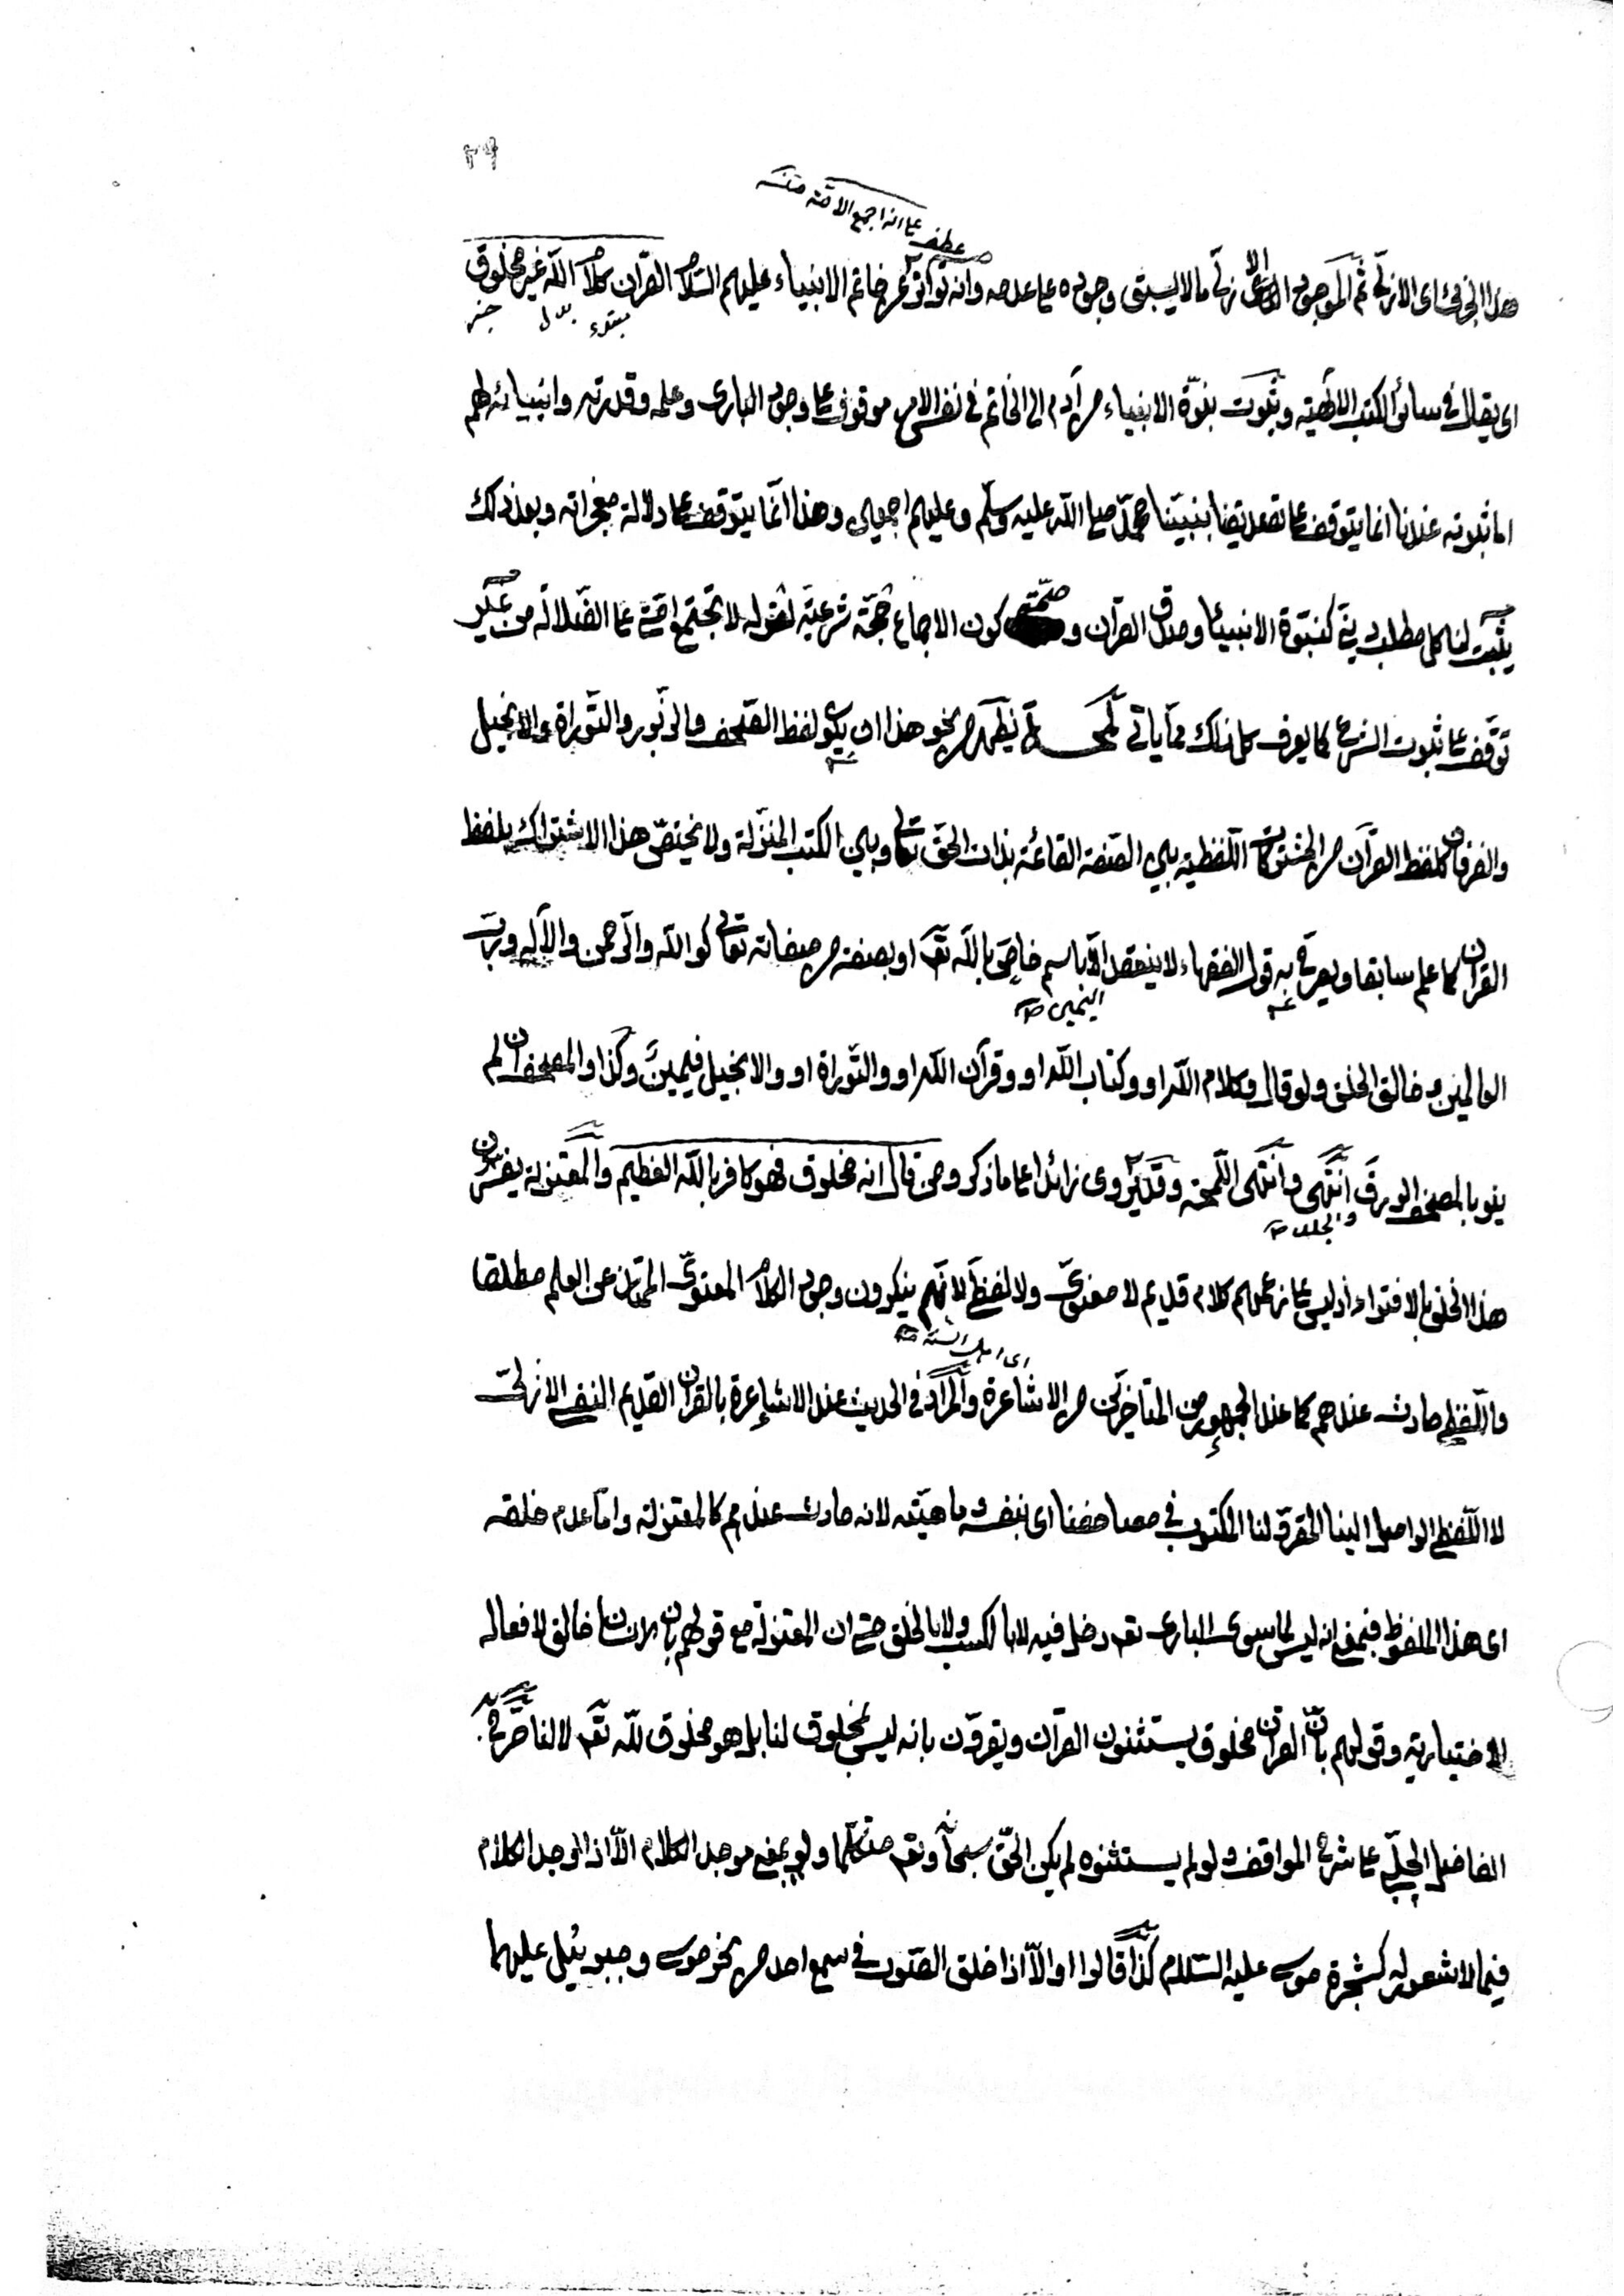 ٢٩
عطف على انه اجمع الامة منه
اى الازلى ثم الموجود الازلى مالا يسبق وجوده على عدمه وانه تواتر عن خاتم الانبياء عليهم السلام القرآن كلام الله غير مخلوق
مبتدء بدل خبر
اى يقال فى سائر الكتب الالهية وثبوت نبوة الانبياء من آدم الى الخاتم فى نفس الامر موقوف على وجود البارى وعلمه وقدرته وانبيائه لهم
اما ثبوته عندنا انما يتوقف على تصديقنا بنبينا محمد صلى الله عليه وسلم وعليهم اجمعين وهذا انما يتوقف على دلالة معجزاته وبعد ذلك
يثبت لنا كل مطلب دينى كنبوة الانبياء وصدق القرآن وصحته كون الاجماع حجة شرعية لقوله لا تجتمع امتى على الضلالة من غير
توقف على ثبوت الشرع كما يعرف كل ذلك مما ياتى لمحـــة يظهر من نحو هذا ان يكون لفظ الصحف والزبور والتوراة والانجيل
والفرقان كلفظ القرآن من المشتركات اللفظية بين الصفة القائمة بذات الحق تعالى وبين الكتب المنزلة ولا يختص هذا الاشتراك بلفظ
القرآن كما علم سابقا ويعرف به قول الفقهاء لا ينعقد الا باسم خاص بالله تعـ او بصفة من صفاته تعالى كو الله والرحمن والاله ورب
اليمين صح
العالمين و خالق الخلق ولو قال وكلام الله او وكتاب الله او وقرآن الله او والتوراة او والانجيل فيمين وكذا والمصحف ان لم
ينو بالمصحف الورق انتهى وانتهى اللمحة وقد يروى زائدا على ما ذكر ومن قال انه مخلوق فهو كافر بالله العظيم والمعتزلة يفسرون
والجلد صح
هذا الخلق بالافتراء اذ ليس على زعمهم كلام قديم لا معنوى ولا لفظى لانهم ينكرون وجود الكلام المعنوى الممتاز عن العلم مطلقا
اى اهل السنة صح
واللفظى حادث عندهم كما عند الجمهور من المتاخرين من الاشاعرة والمراد فى الحديث عند الاشاعرة بالقرآن القديم النفسى الازلى
لا اللفظى الواصل الينا المقرو لنا المكتوب فى مصاحفنا اى بنفسه وماهيته لانه حادث عندهم كالمعتزلة واما عدم خلقه
اى هذا الملفوظ فبمعنى انه ليس لما سوى البارى تعـ دخل فيه لا بالكسب ولا بالخلق حتى ان المعتزلة مع قولهم بان الانسان خالق لافعاله
الاختيارية وقولهم بان القرآن مخلوق يستثنون القرآن ويقرون بانه ليس بمخلوق لنا بل هو مخلوق لله تعـ لا لنا صرح
الفاضل الچلبى على شرح المواقف ولو لم يستثنوه لم يكن الحق سبحانه وتعـ متكلما ولو بمعنى موجد الكلام الا اذا اوجد الكلام
فيما لا شعور له كشجرة موسى عليه السلام كذا قالوا او الا اذا خلق الصوت فى سمع احد من نحو موسى وجبرئيل عليهما